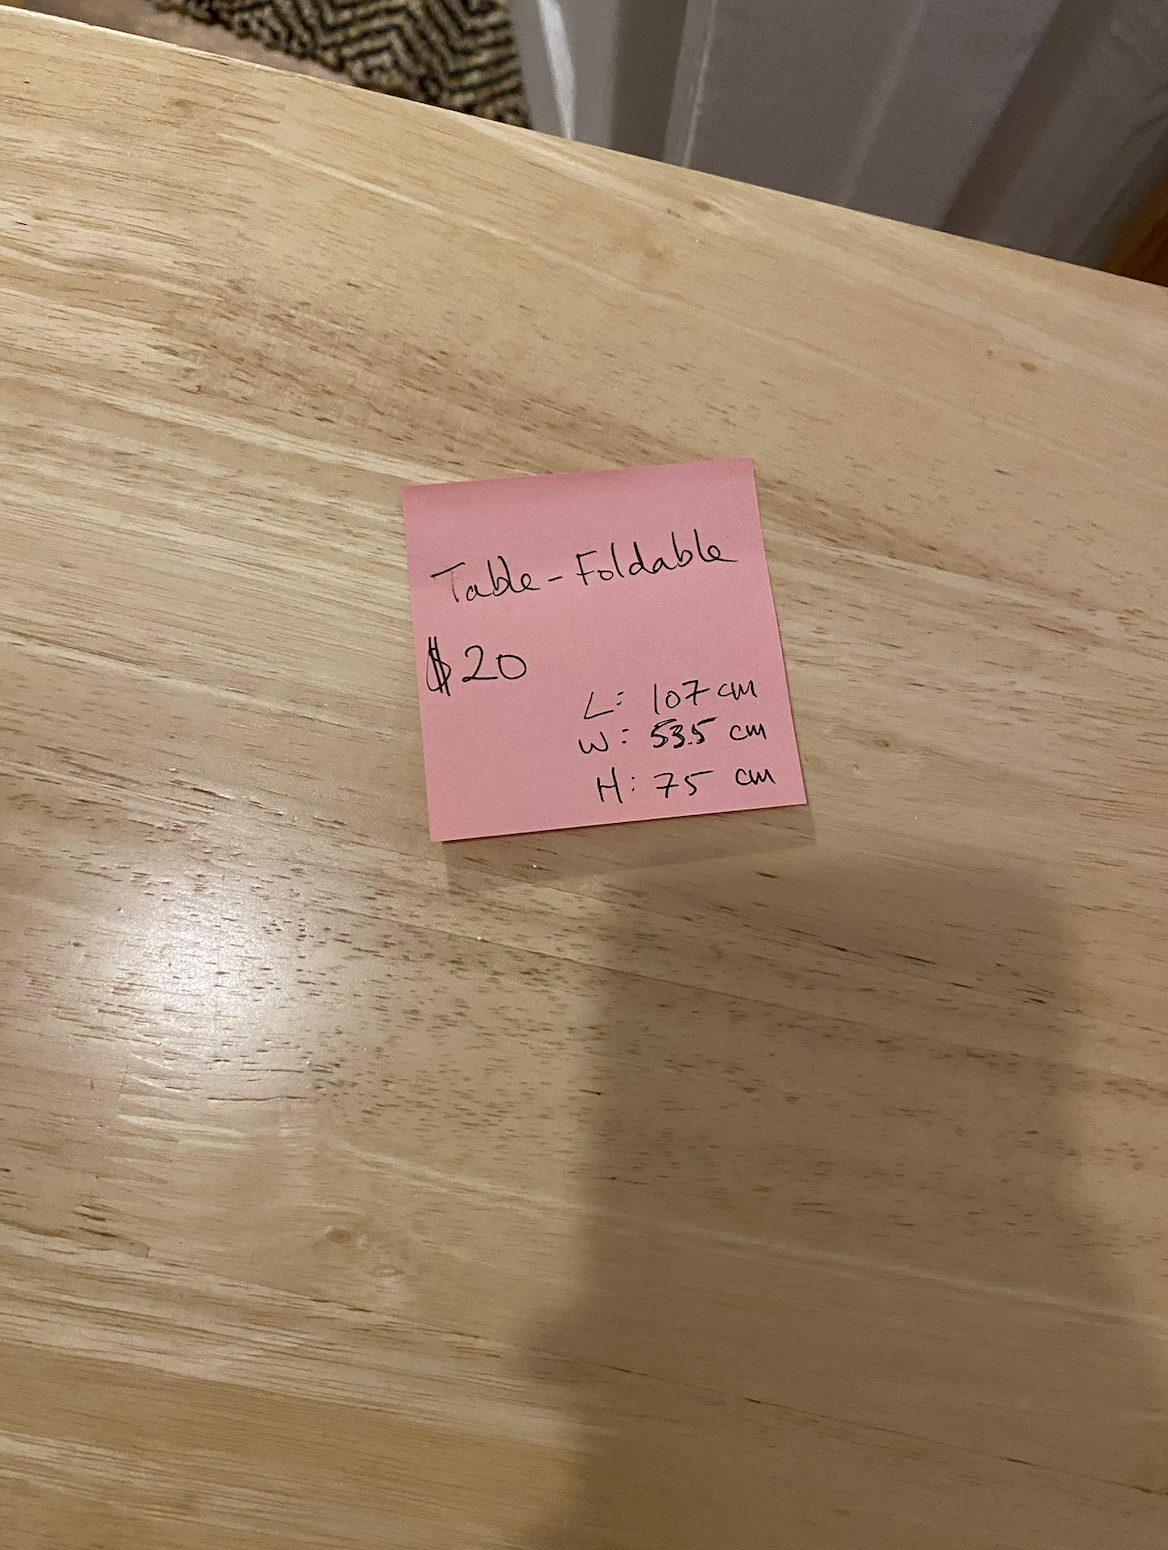 Table - Foldable
$20
L: 107 cm
W: 53.5 cm
H: 75 cm